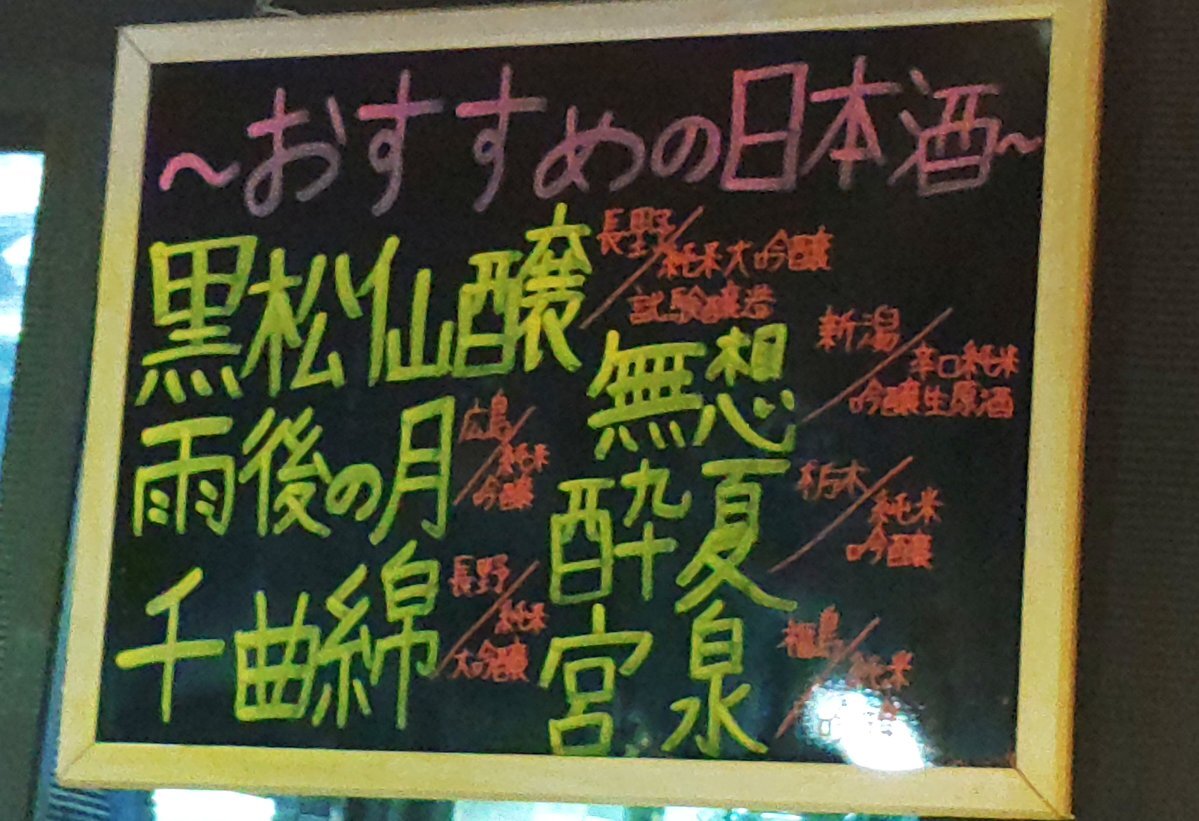 ～おすすめの日本酒～
黒松仙醸
長野／
純米大吟醸
試験醸造
無想
新潟／
辛口純米
吟醸生原酒
雨後の月
広島／
純米
吟醸
酔夏
栃木／
純米
吟醸
千曲錦
長野／
純米
大吟醸
宮泉
福島／
純米